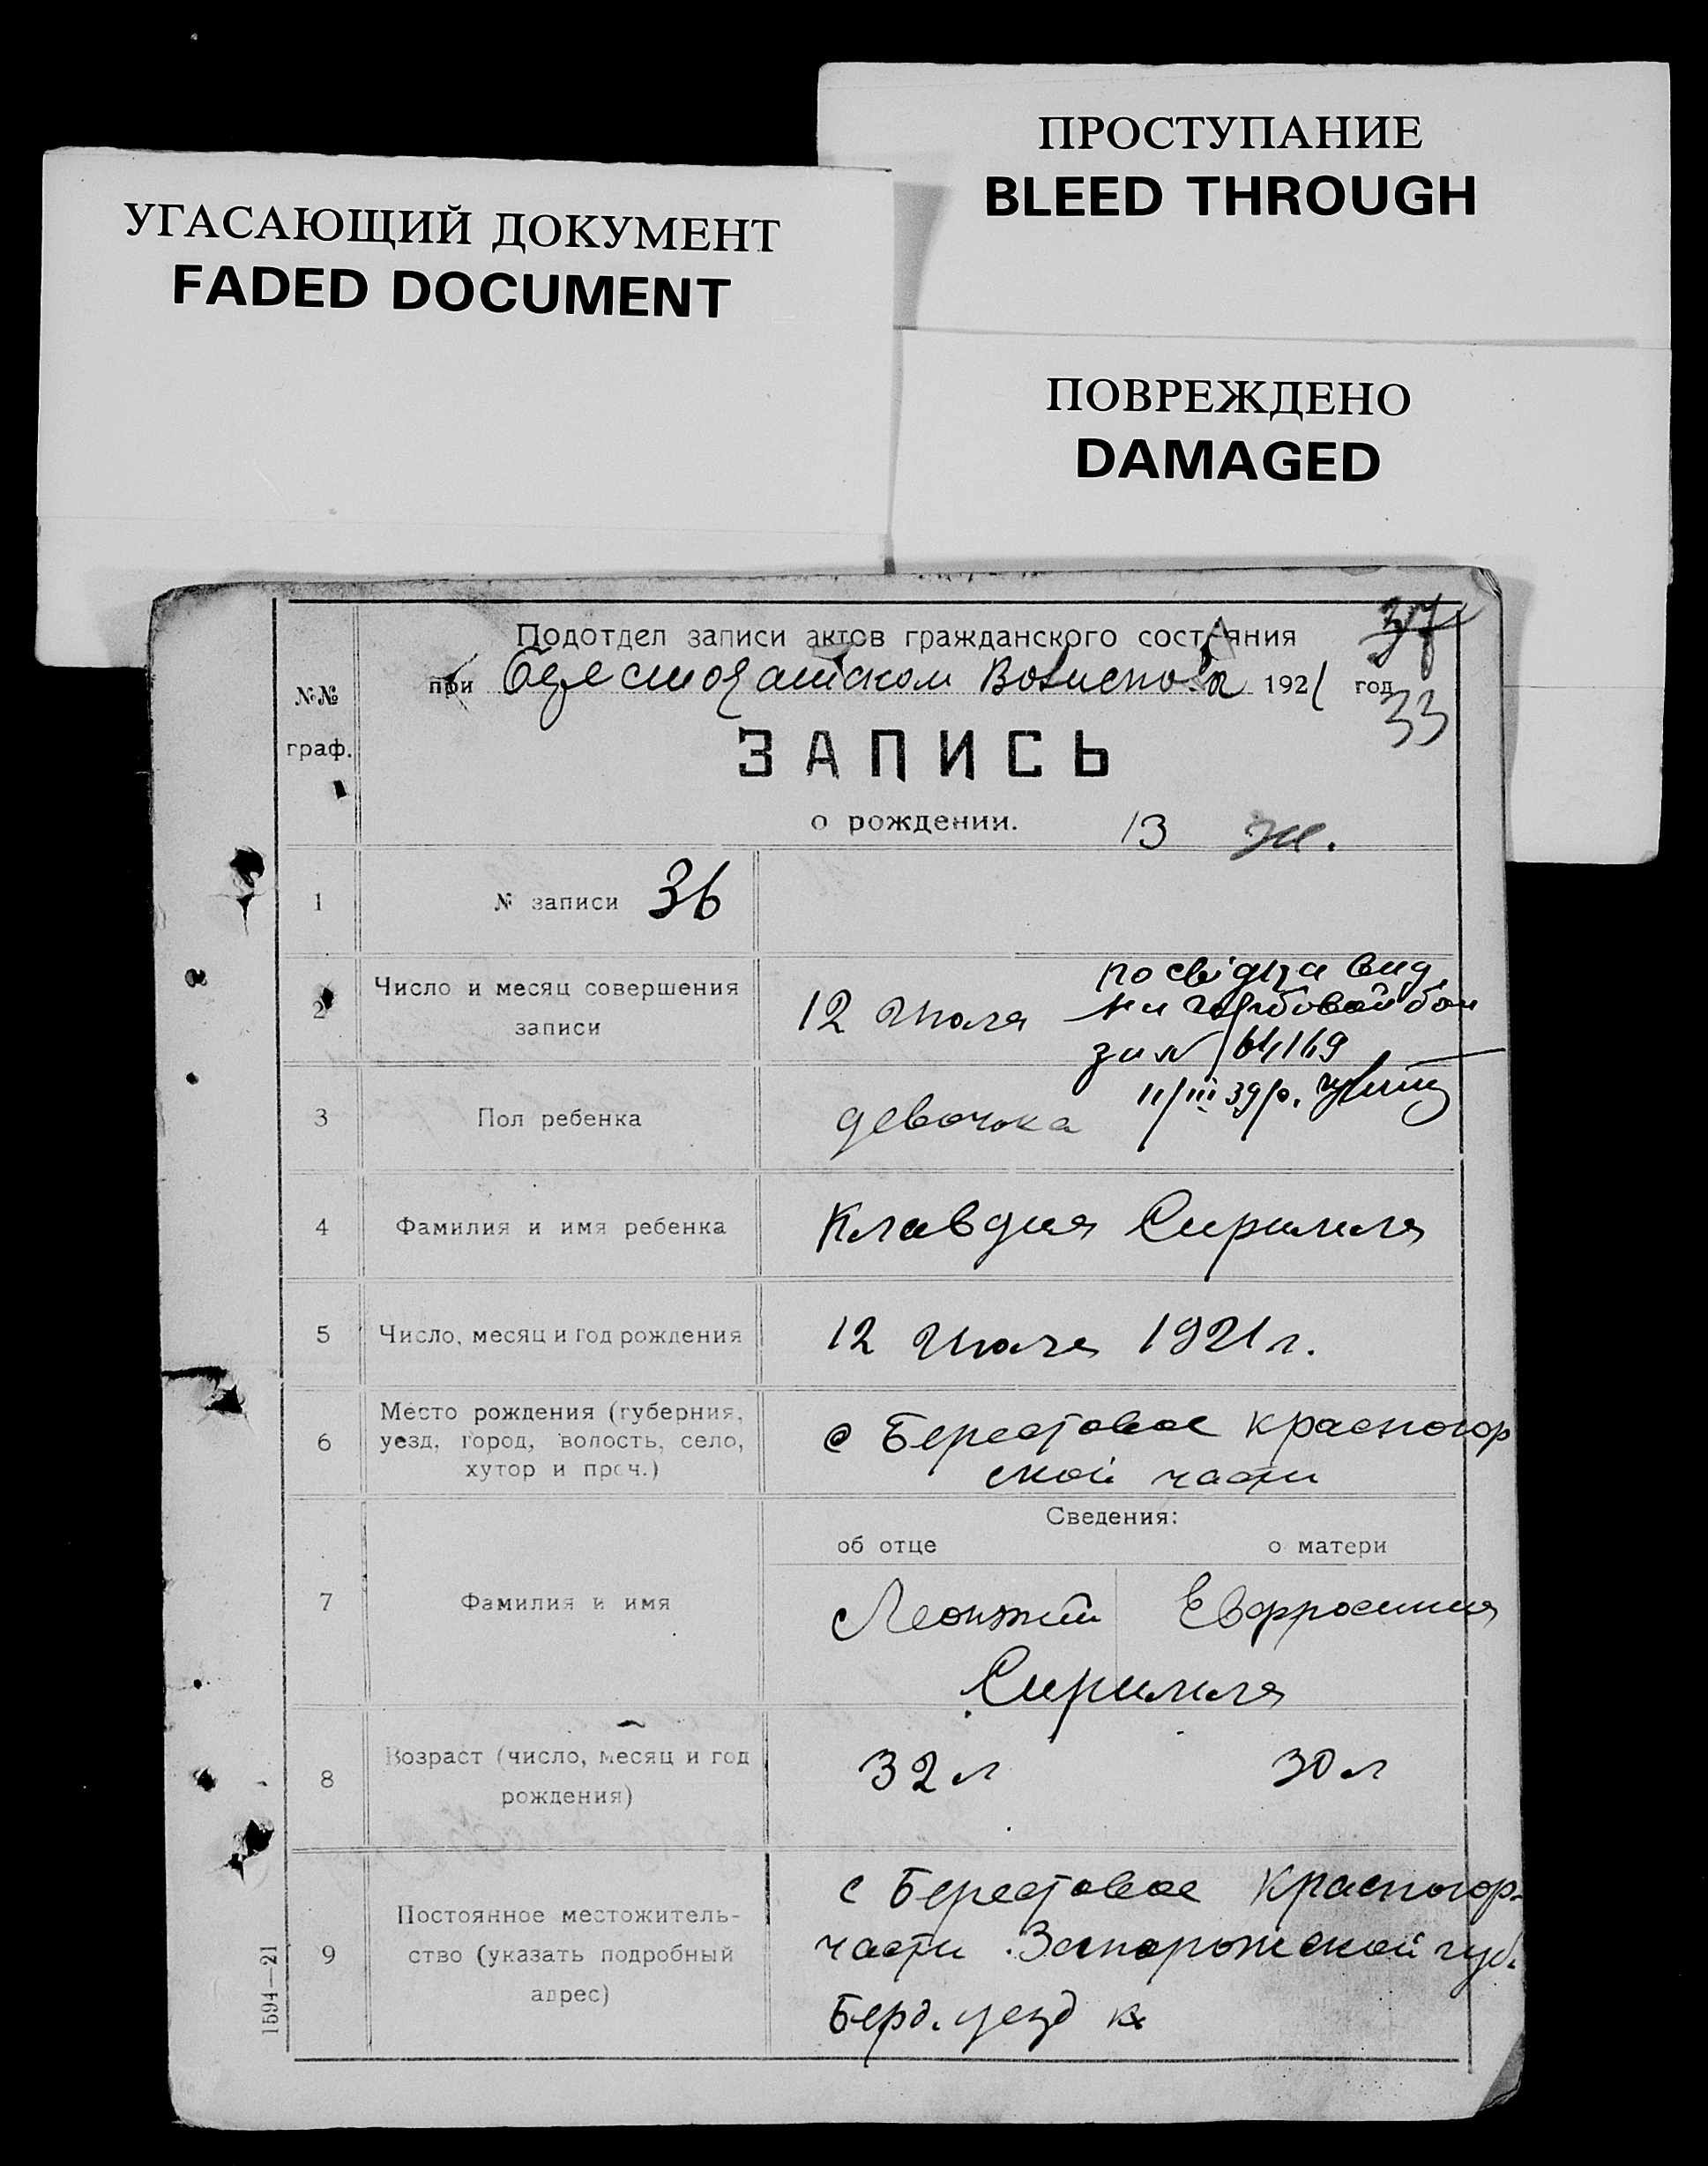 ПРОСТУПАНИЕ
BLEED THROUGH
УГАСАЮЩИЙ ДОКУМЕНТ
FADED DOCUMENT
ПОВРЕЖДЕНО
DAMAGED
37
Подотдел записи актов гражданского состояния
при 1921 год
33
№№
граф.
ЗАПИСЬ
о рождении. 13 Ж.
1 № записи 36
2 Число и месяц совершения
записи
12 Июля
по свідіза вид
за № 64169
11/III 39 р.
3 Пол ребенка девочка
4 Фамилия и имя ребенка Клавдия
5 Число, месяц и год рождения 12 Июля 1921 г.
6 Место рождения (губерния,
уезд, город, волость, село,
хутор и проч.)
с Берестовое Красногор
ской части
Сведения:
об отце о матери
7 Фамилия и имя
Леонтий Евфросиния
8 Возраст (число, месяц и год
рождения)
32 л 30 л
9 Постоянное местожитель-
ство (указать подробный
адрес)
с Берестовое Красногор-
части Запорожской губ.
Берд. уезд
1594—21